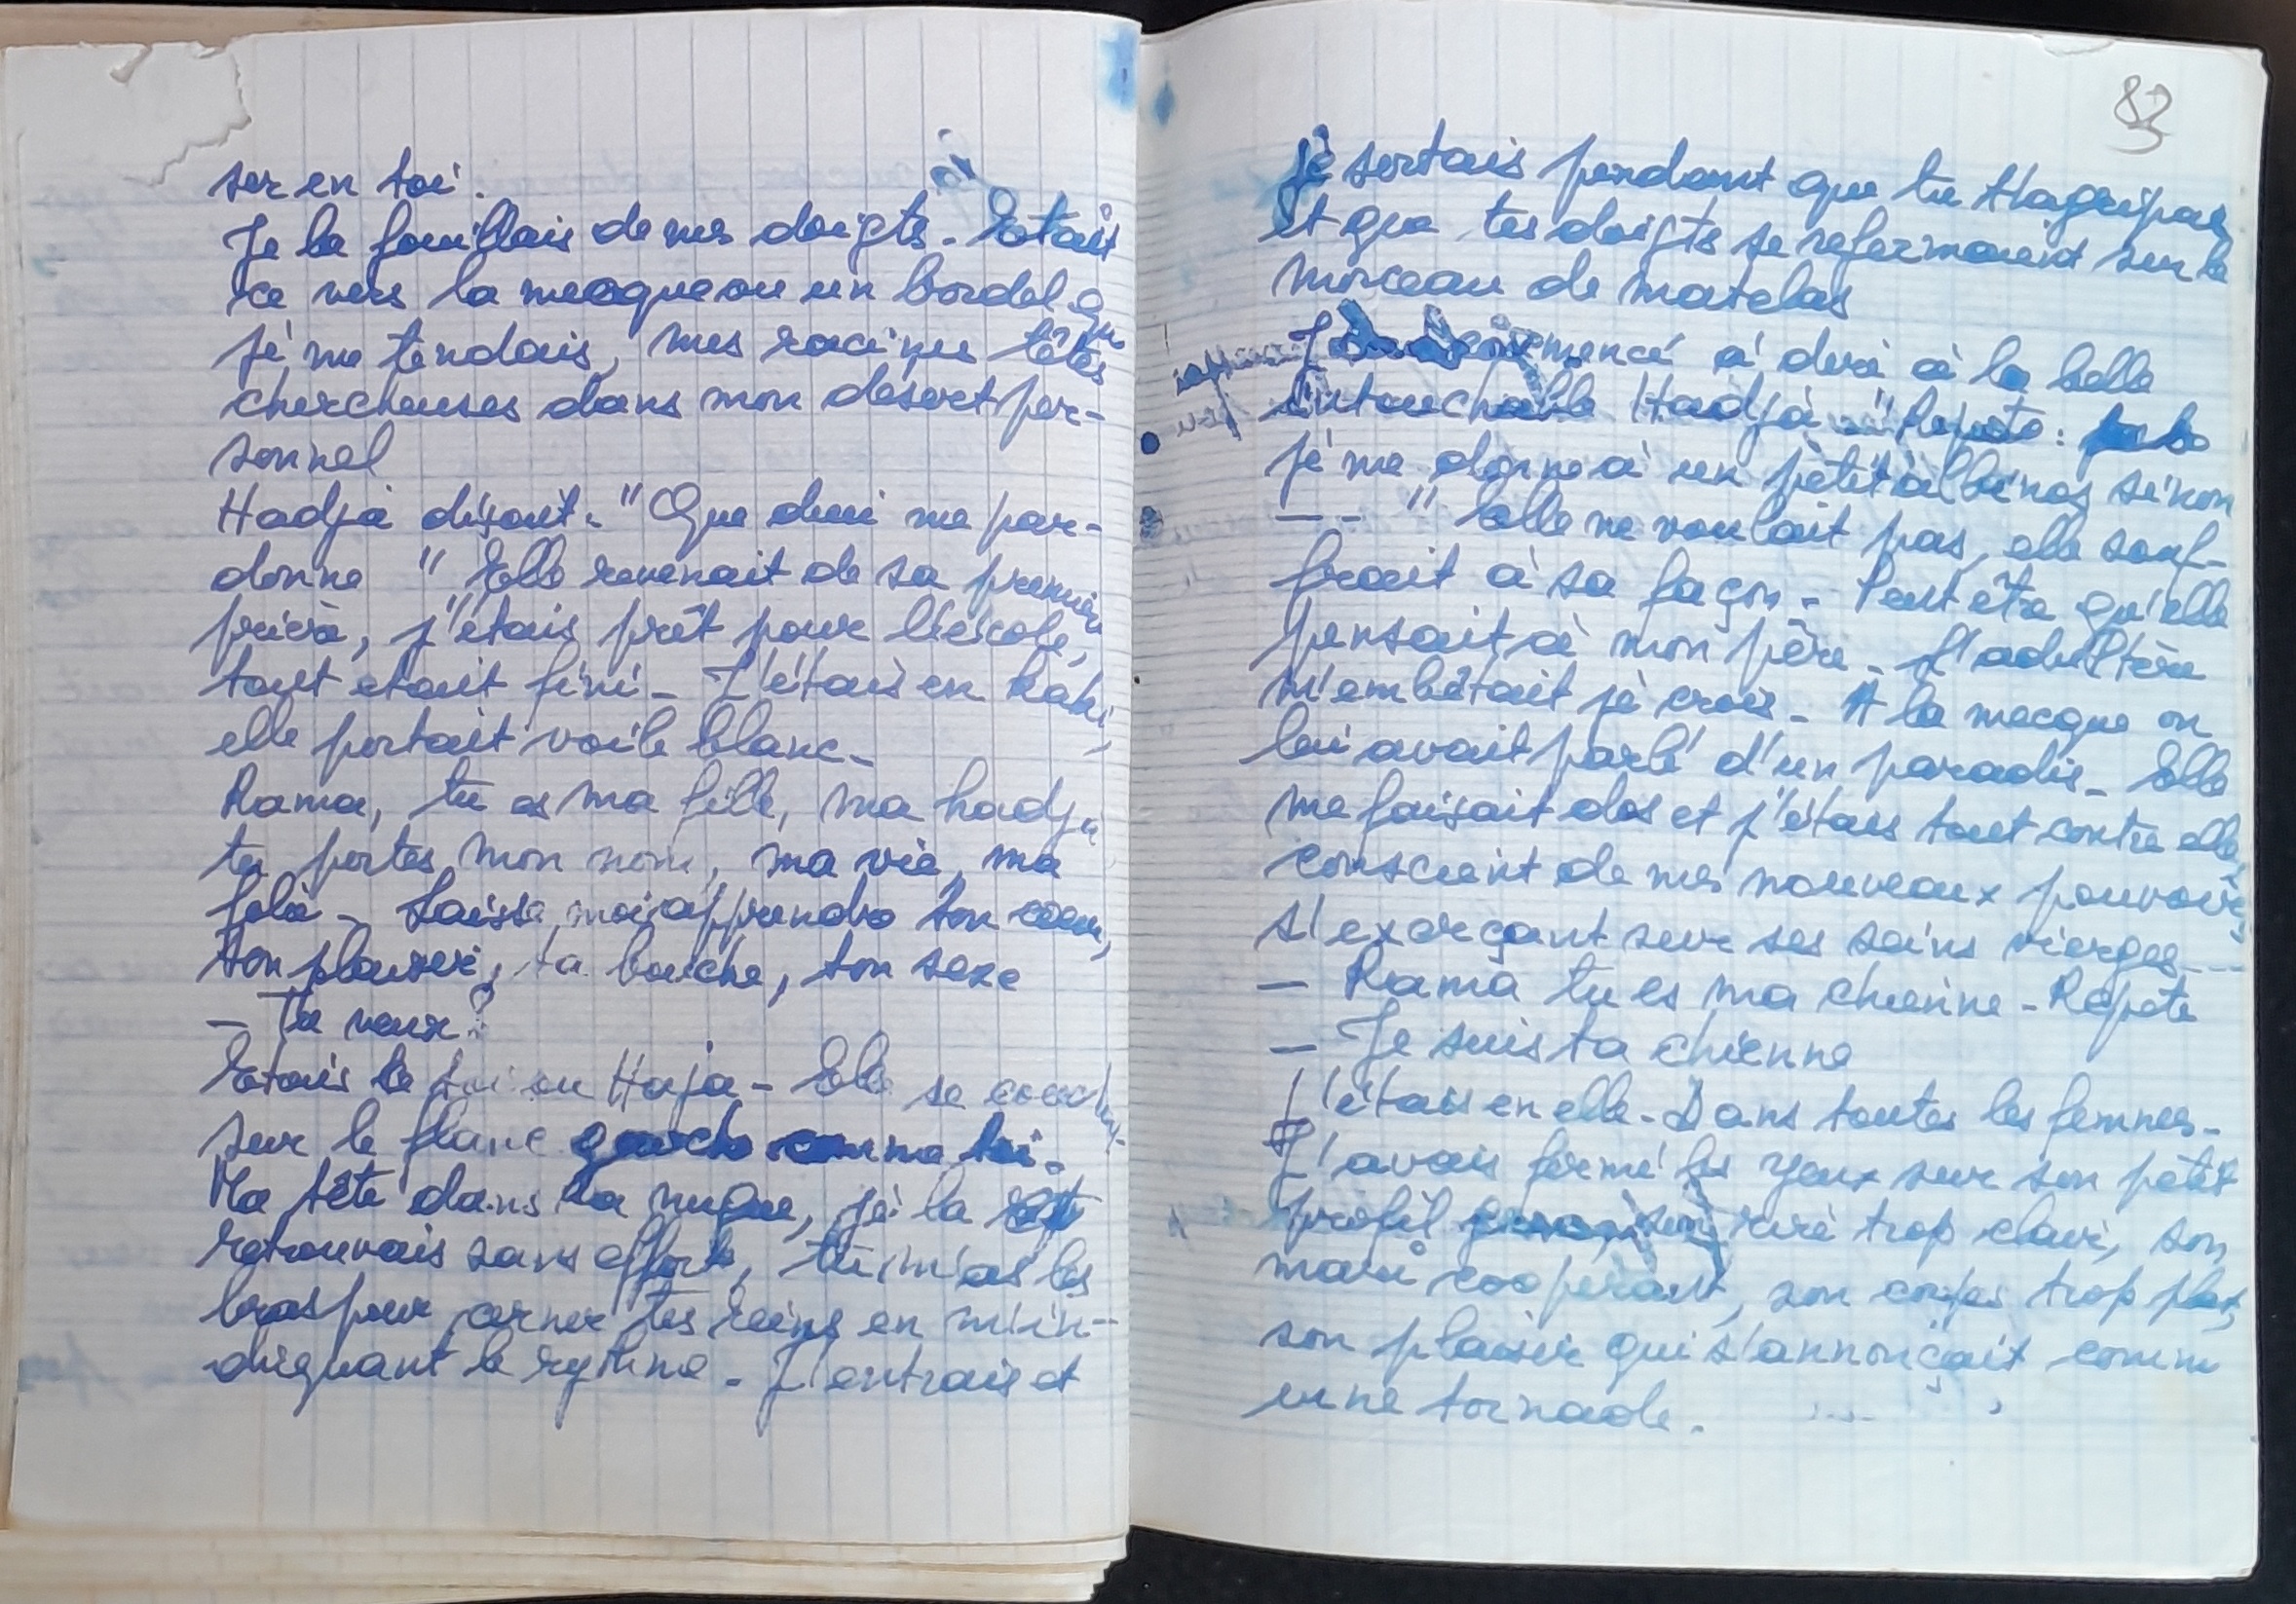 ser en toi.
Je la fouillais de mes doigts. Etait
ce vers la mecque ou un bordel que
je me tendais, mes racines têtes
chercheuses dans mon desert per-
sonnel
Hadja disait. "Que dieu me par-
donne" Elle revenait de sa première
prière, j'étais prêt pour l'école,
tout était fini - J'étais en kaki,
elle portait voile blanc -
Rama, tu es ma fille, ma hadja
tu portes mon nom, ma vie, ma
folie - Laisse moi apprendre ton coeur,
ton plaisir, ta bouche, ton sexe
- Tu veux?
Etais ce toi ou Haja - Elle se couchait
sur le flanc gauche comme toi.
Ma tête dans la nuque, je la
retrouvais sans effort, tu m'as les
bras pour cerner tes reins en m'in-
diquant le rythme - J'entrais et
83
Je sortais pendant que tu t'agrippais
et que tes doigts se refermaient sur le
morceau de matelas
J' commencé à dire à la belle
intouchable Hadja - "Repete:
je me donne à un petit albinos sinon
- - " Elle ne voulait pas, elle souf-
frait à sa façon - Peut être qu'elle
pensait à mon père - L'adultère
m'embêtait je crois - A la mecque on
lui avait parlé d'un paradis - Elle
me faisait dos et j'étais tout contre elle,
conscient de mes nouveaux pouvoirs
s'exerçant sur ses seins vierges ---
- Rama tu es ma chienne - Repete
- Je suis ta chienne
J'étais en elle - Dans toutes les femmes -
J'avais fermé les yeux sur son petit
profil son rire trop clair, son
mari cooperant, son corps trop plat,
son plaisir qui s'annonçait comm
une tornade.